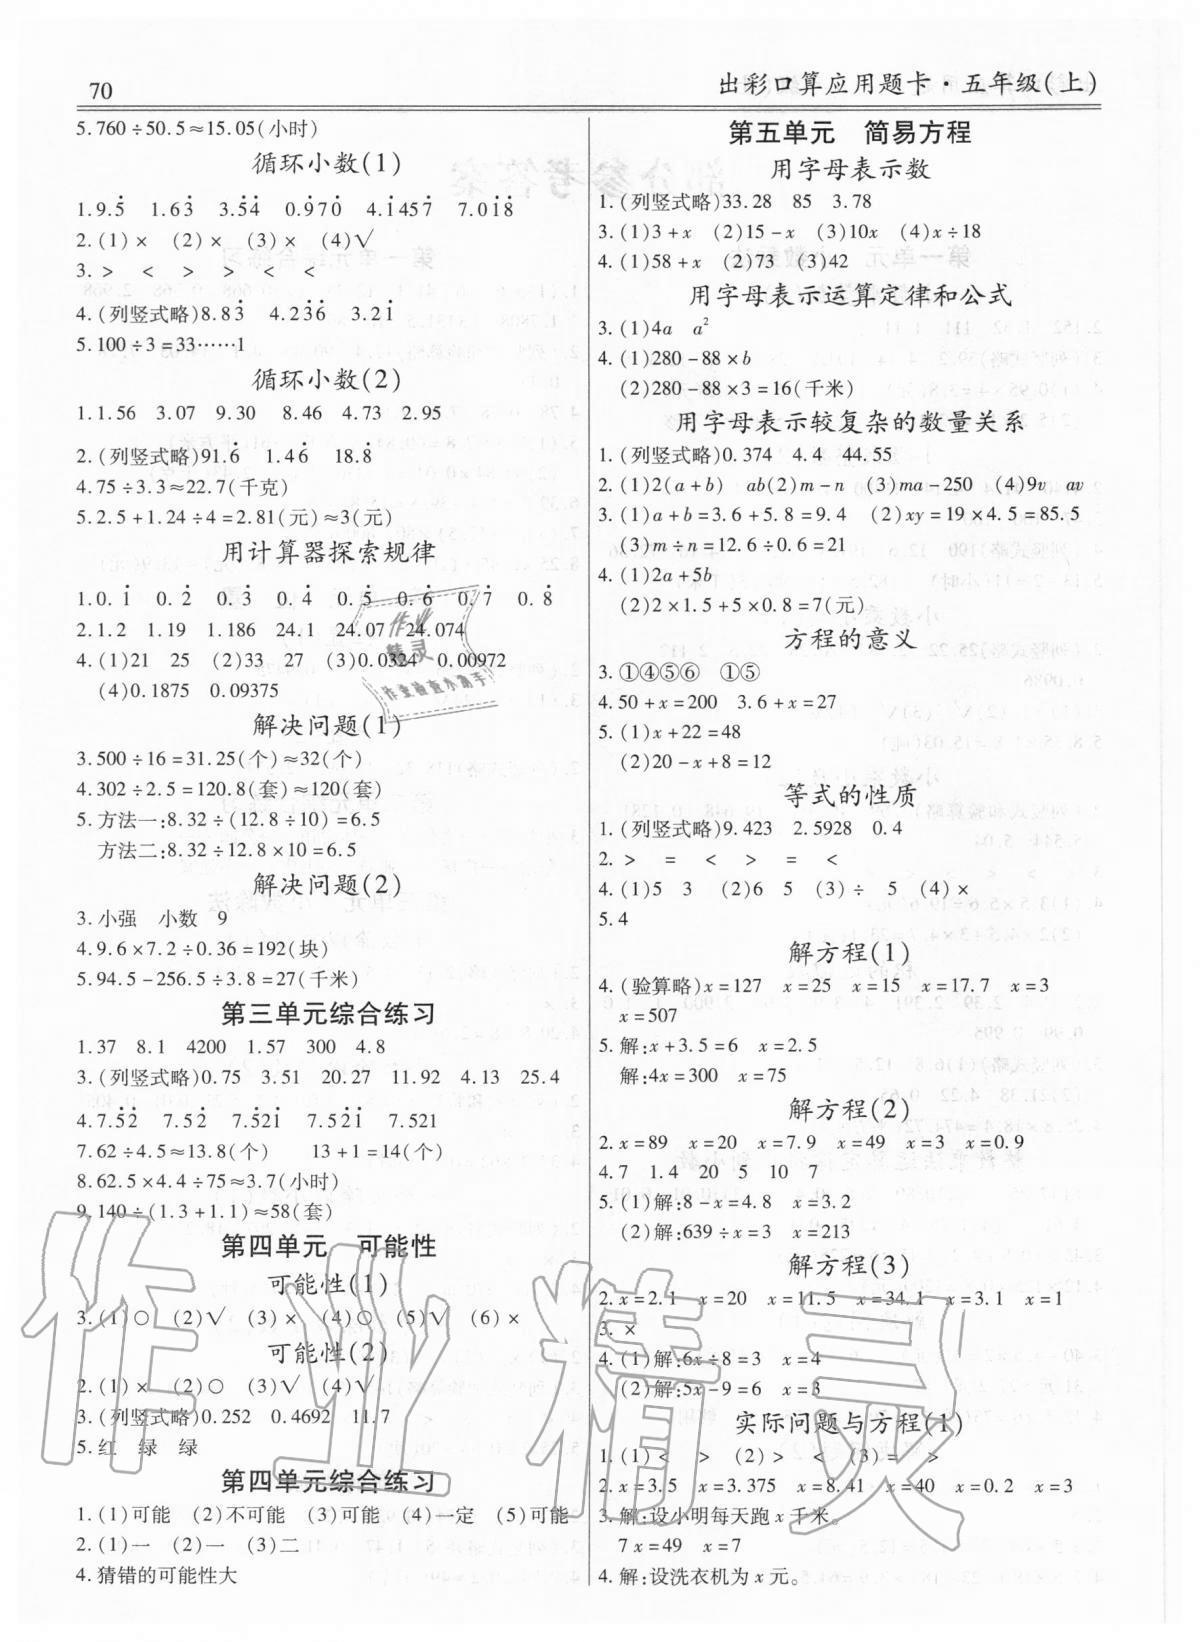 70
出彩口算应用题卡·五年级(上)
5.760÷50.5≈15.05(小时)
循环小数(1)
1.9.5̇ 1.63̇ 3.5̇4̇ 0.9̇70̇ 4.1̇457̇ 7.01̇8̇
2.(1)× (2)× (3)× (4)√
3.> < > < <
4.(列竖式略)8.83̇ 4.23̇6̇ 3.21̇
5.100÷3=33……1
循环小数(2)
1.1.56 3.07 9.30 8.46 4.73 2.95
2.(列竖式略)91.6 1.46̇ 18.8
4.75÷3.3≈22.7(千克)
5.2.5+1.24÷4=2.81(元)≈3(元)
用计算器探索规律
1.0.1̇ 0.2̇ 0.3̇ 0.4̇ 0.5̇ 0.6̇ 0.7̇ 0.8̇
2.1.2 1.19 1.186 24.1 24.07 24.074
4.(1)21 25 (2)33 27 (3)0.0324 0.00972
(4)0.1875 0.09375
解决问题(1)
3.500÷16=31.25(个)≈32(个)
4.302÷2.5=120.8(套)≈120(套)
5.方法一:8.32÷(12.8÷10)=6.5
方法二:8.32÷12.8×10=6.5
解决问题(2)
3.小强 小数 9
4.9.6×7.2÷0.36=192(块)
5.94.5-256.5÷3.8=27(千米)
第三单元综合练习
1.37 8.1 4200 1.57 300 4.8
3.(列竖式略)0.75 3.51 20.27 11.92 4.13 25.4
4.7.5̇2̇ 7.52̇ 7.5̇21̇ 7.52̇1̇ 7.521
7.62÷4.5≈13.8(个) 13+1=14(个)
8.62.5×4.4÷75≈3.7(小时)
9.140÷(1.3+1.1)≈58(套)
第四单元 可能性
可能性(1)
3.(1)○ (2)√ (3)× (4)○ (5)√ (6)×
可能性(2)
2.(1)× (2)○ (3)√ (4)√
3.(列竖式略)0.252 0.4692 11.7
5.红 绿 绿
第四单元综合练习
1.(1)可能 (2)不可能 (3)可能 (4)一定 (5)可能
2.(1)一 (2)一 (3)二
4.猜错的可能性大
第五单元 简易方程
用字母表示数
1.(列竖式略)33.28 85 3.78
3.(1)3+x (2)15-x (3)10x (4)x÷18
4.(1)58+x (2)73 (3)42
用字母表示运算定律和公式
3.(1)4a a²
4.(1)280-88×b
(2)280-88×3=16(千米)
用字母表示较复杂的数量关系
1.(列竖式略)0.374 4.4 44.55
2.(1)2(a+b) ab(2)m-n (3)ma-250 (4)9v av
3.(1)a+b=3.6+5.8=9.4 (2)xy=19×4.5=85.5
(3)m÷n=12.6÷0.6=21
4.(1)2a+5b
(2)2×1.5+5×0.8=7(元)
方程的意义
3.①④⑤⑥ ①⑤
4.50+x=200 3.6+x=27
5.(1)x+22=48
(2)20-x+8=12
等式的性质
1.(列竖式略)9.423 2.5928 0.4
2.> = < > = <
4.(1)5 3 (2)6 5 (3)÷ 5 (4)×
5.4
解方程(1)
4.(验算略)x=127 x=25 x=15 x=17.7 x=3
x=507
5.解:x+3.5=6 x=2.5
解:4x=300 x=75
解方程(2)
2.x=89 x=20 x=7.9 x=49 x=3 x=0.9
4.7 1.4 20 5 10 7
5.(1)解:8-x=4.8 x=3.2
(2)解:639÷x=3 x=213
解方程(3)
2.x=2.1 x=20 x=11.5 x=34.1 x=3.1 x=1
3.×
4.(1)解:6x÷8=3 x=4
(2)解:5x-9=6 x=3
实际问题与方程(1)
1.(1)< > (2)> < (3)= >
2.x=3.5 x=3.375 x=8.41 x=40 x=0.2 x=3
3.解:设小明每天跑x千米。
7x=49 x=7
4.解:设洗衣机为x元。
作业精灵
作业检查小助手
作业精灵